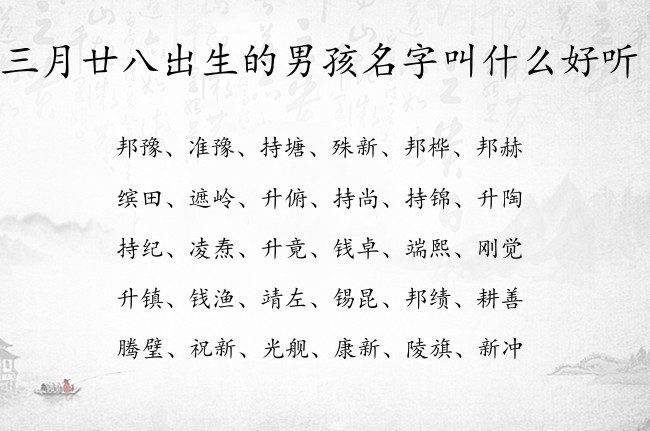 三月廿八出生的男孩名字叫什么好听
邦豫、准豫、持塘、殊新、邦桦、邦赫
缤田、遮岭、升俯、持尚、持锦、升陶
持纪、凌焘、升竟、钱卓、端熙、刚觉
升镇、钱渔、靖左、锡昆、邦绩、耕善
腾璧、祝新、光舰、康新、陵旗、新冲